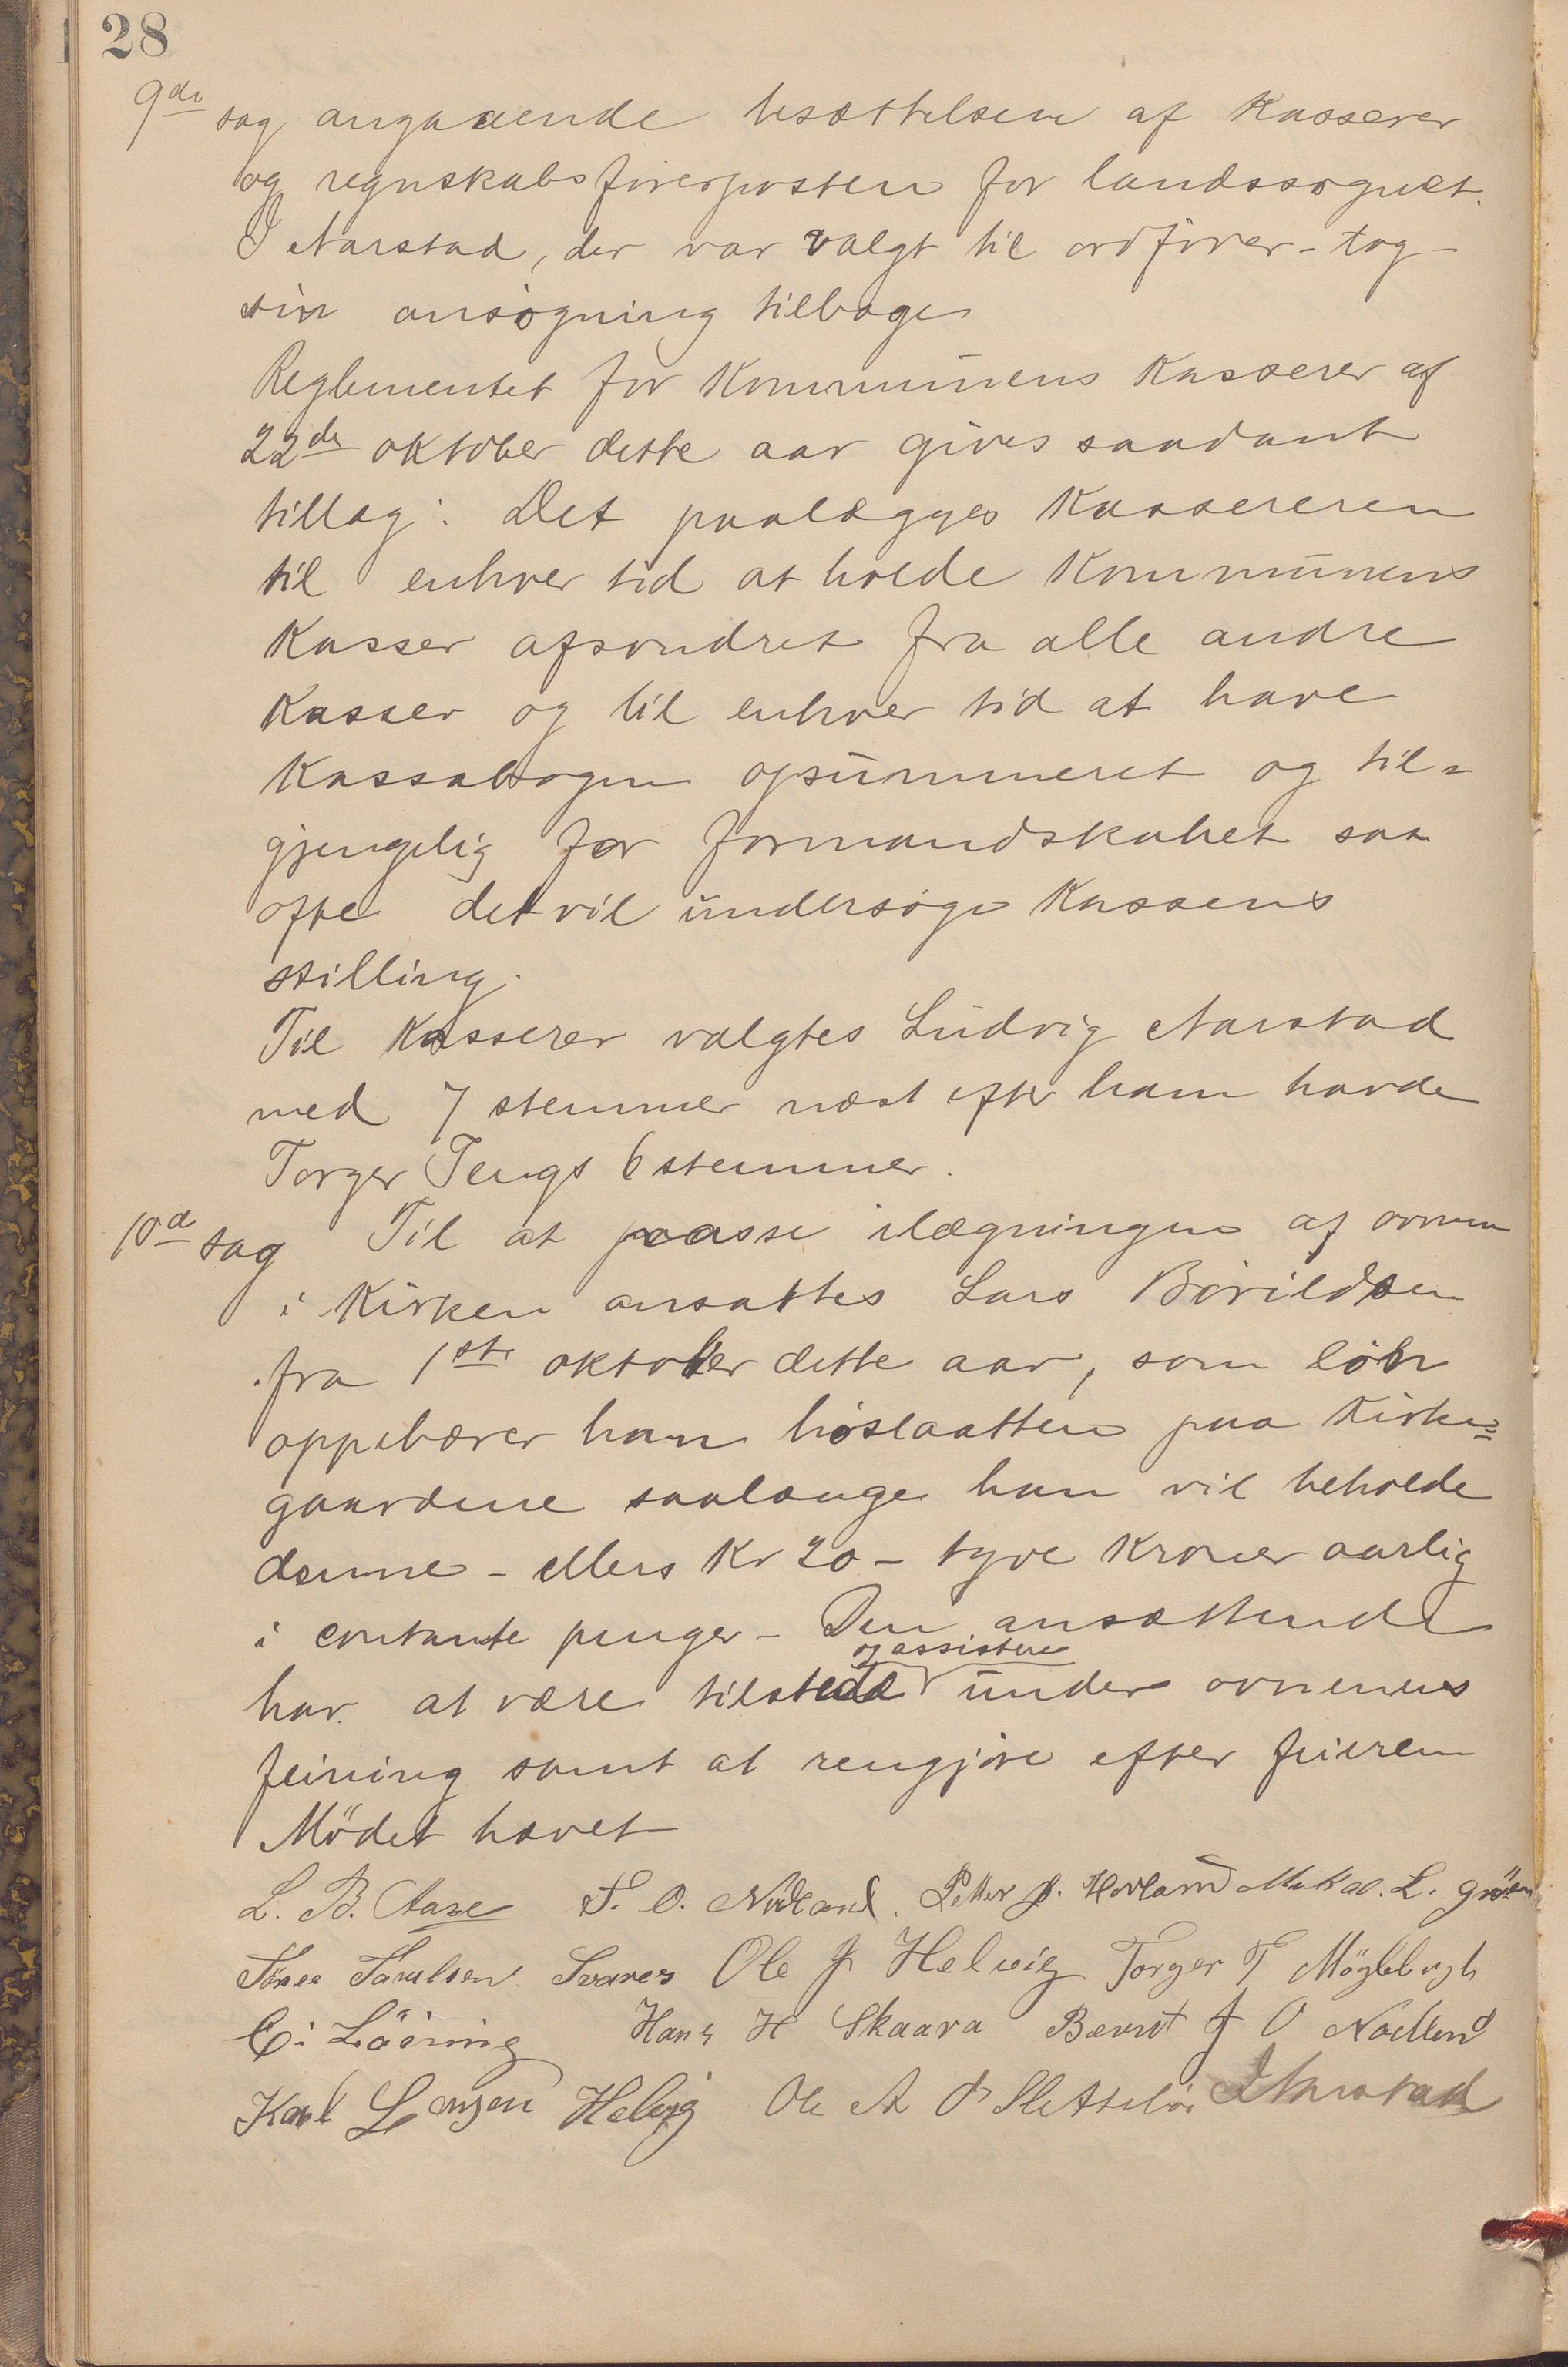 28
9de sag angaaende besættelsen af Kasserer
og regnskabsførerposten for landssognet.
I Aarstad, der var valgt til ordfører - tog
sin ansøgning tilbage
Reglementet for Kommunens Kasserer af
22de oktober dette aar gives saadant
tillæg: Det paalægges Kassereren
til enhver tid at holde Kommunens
Kasser afsondret fra alle andre
Kasser og til enhver tid at have
Kassabogen opsummeret og til=
gjengelig for formandskabet saa
ofte det vil undersøge Kassens
stilling.
Til Kasserer valgtes Ludvig Aarstad
med 7 stemmer næst efter ham havde
Torger Tengs 6 stemmer.
10de sag Til at passe ilægningen af ovnen
i Kirken ansattes Lars Bøvildsen
fra 1ste oktober dette aar, som løn
oppebærer han høslaatten paa Kirke=
gaardene saalænge han vil beholde
denne - ellers Kr 20 - tyve Kroner aarlig
i contante penger - Den ansættende
har at være tilstede og assistere under ovnenens
feining samt at rengjøre efter feieren
Mödet hævet
L. B. Aase T. O. Nödland. Petter J. Hovland Mikal. L. Gröen
Tönnes Svanes Ole J Helvig Torger T Möglebrgh
C. Löining Hans H Skaara Berent J O Nodland
Karl Lensen Helvig Ole A Slettebö I Aarstad